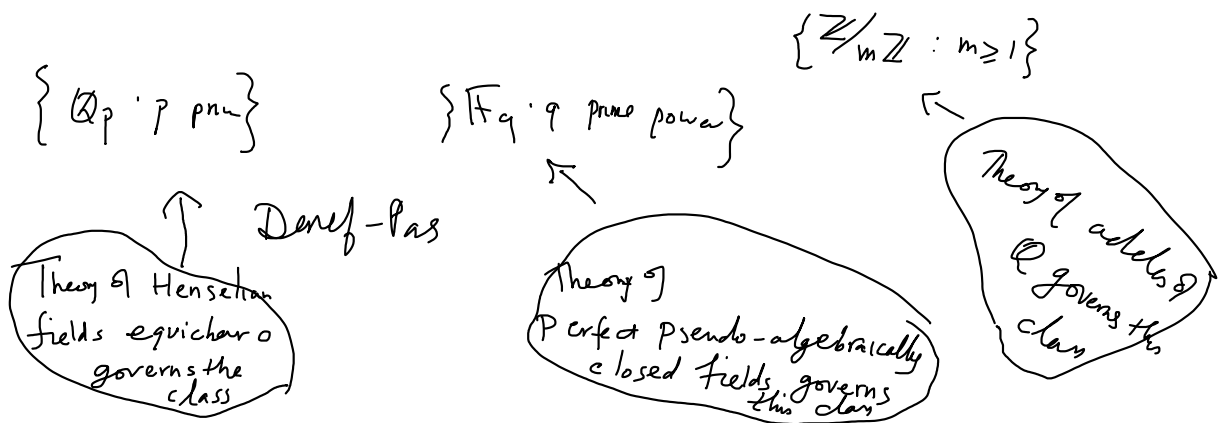 {ℤ/mℤ : m ≥ 1}
{ℚp : p prime}
{𝔽q : q prime power}
Denef-Pas
Theory of Henselian
fields equichar 0
governs the
class
Theory of
Perfect pseudo-algebraically
closed fields governs
this class
Theory of adeles of
ℚ governs this
class